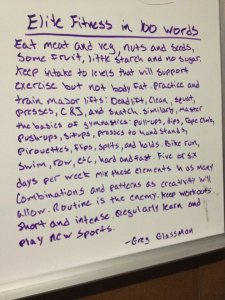 Elite Fitness in 100 words
Eat meat and veg, nuts and seeds,
Some fruit, little starch and no sugar.
Keep intake to levels that will support
exercise but not body fat. Practice and
train major lifts: Deadlift, Clean, squat,
presses, C&J, and snatch. Similarly, master
the basics of gymnastics: pull-ups, dips, rope climb,
push-ups, sit-ups, presses to hand stands,
pirouettes, flips, splits, and holds. Bike run,
swim, row, etc, hard and fast. Five or six
days per week mix these elements in as many
combinations and patterns as creativity will
allow. Routine is the enemy. Keep workouts
short and intense. Regularly learn and
play new sports.
-Greg Glassman